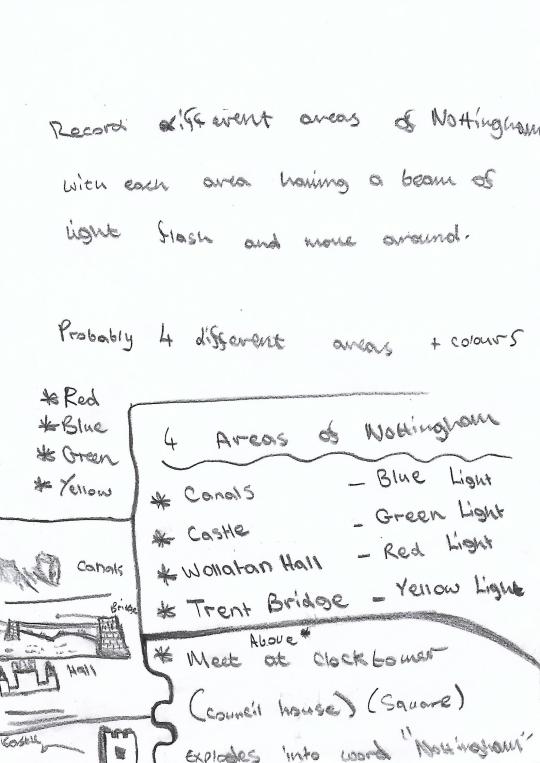 Record different areas of Nottingham
with each area having a beam of
light flash and move around.
Probably 4 different areas + colours
* Red
* Blue
* Green
* Yellow
4 Areas of Nottingham
* Canals - Blue Light
* Castle - Green Light
* Wollatan Hall - Red Light
* Trent Bridge - Yellow Light
Canals
Bridge
Hall
Castle
Above *
* Meet at Clocktower
(council house) (Square)
Explodes into word "Nottingham"